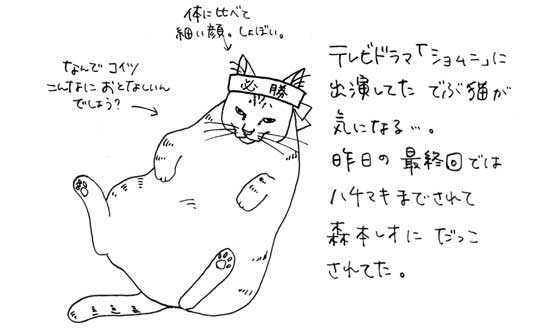 体に比べて
細い顔。しょぼい。
なんで コイツ
こんなに おとなしいん
でしょう?
必勝
テレビドラマ「ショムニ」に
出演してた でぶ猫が
気になる…。
昨日の 最終回では
ハチマキまでされて
森本レオに だっこ
されてた。